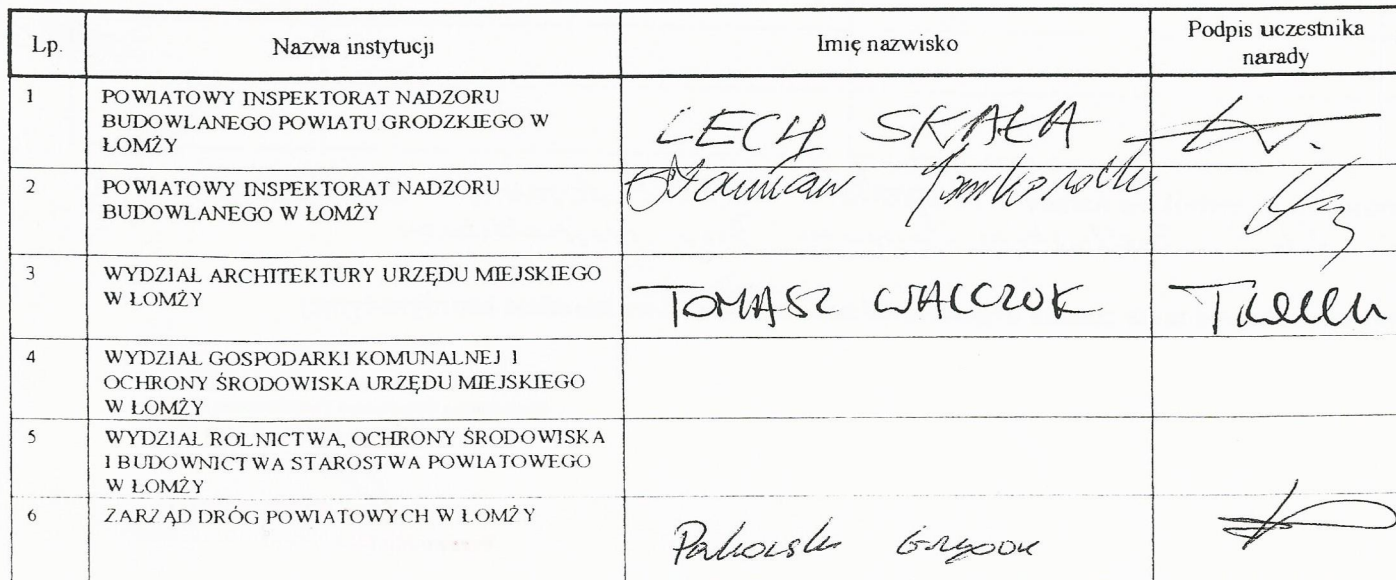 Lp. Nazwa instytucji Imię nazwisko Podpis uczestnika
narady
1 POWIATOWY INSPEKTORAT NADZORU
BUDOWLANEGO POWIATU GRODZKIEGO W
ŁOMŻY
LECH SKAŁA
2 POWIATOWY INSPEKTORAT NADZORU
BUDOWLANEGO W ŁOMŻY
3 WYDZIAŁ ARCHITEKTURY URZĘDU MIEJSKIEGO
W ŁOMŻY
TOMASZ WALCZUK
4 WYDZIAŁ GOSPODARKI KOMUNALNEJ I
OCHRONY ŚRODOWISKA URZĘDU MIEJSKIEGO
W ŁOMŻY
5 WYDZIAŁ ROLNICTWA, OCHRONY ŚRODOWISKA
I BUDOWNICTWA STAROSTWA POWIATOWEGO
W ŁOMŻY
6 ZARZĄD DRÓG POWIATOWYCH W ŁOMŻY